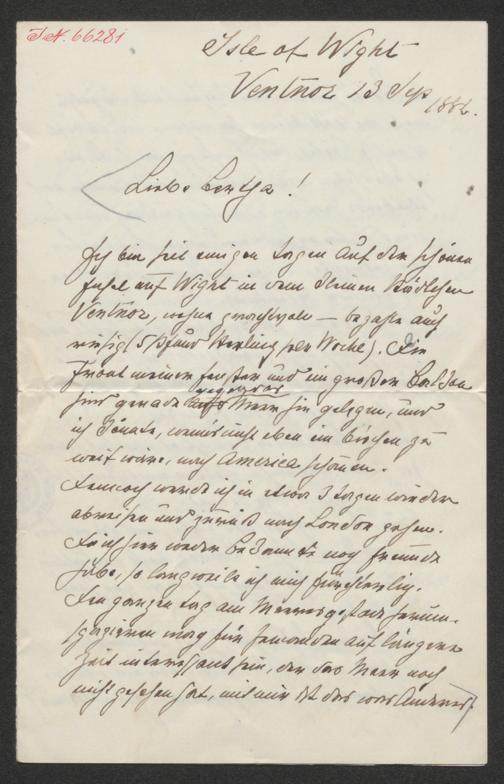 I.N. 66281
Isle of Wight
Ventnor 13 Sep
1882.
Liebe Bertha!
Ich bin seit einigen Tagen auf der schönen
Insel auf Wight in dem kleinen Städtchen
Ventnor, wohne prachtvoll — bezahle auch
riesig (5 Pfund Sterling per Woche). Die
Front meiner Fenster und im großen Balkon
sind gerade gegen das Meer hin gelegen, und
ich könnte, wenn's nicht eben ein bischen zu
weit wäre, nach America schauen.
Dennoch werde ich in etwa 3 Tagen wieder
abreisen und zurück nach London gehen.
Da ich hier weder Bekannte noch Freunde
habe, so langweile ich mich fürchterlich.
Den ganzen Tag am Meeresgestade herum-
spazieren mag für Jemanden auf längere
Zeit interessant sein, der das Meer noch
nicht gesehen hat, mit mir ist das was Anderes,